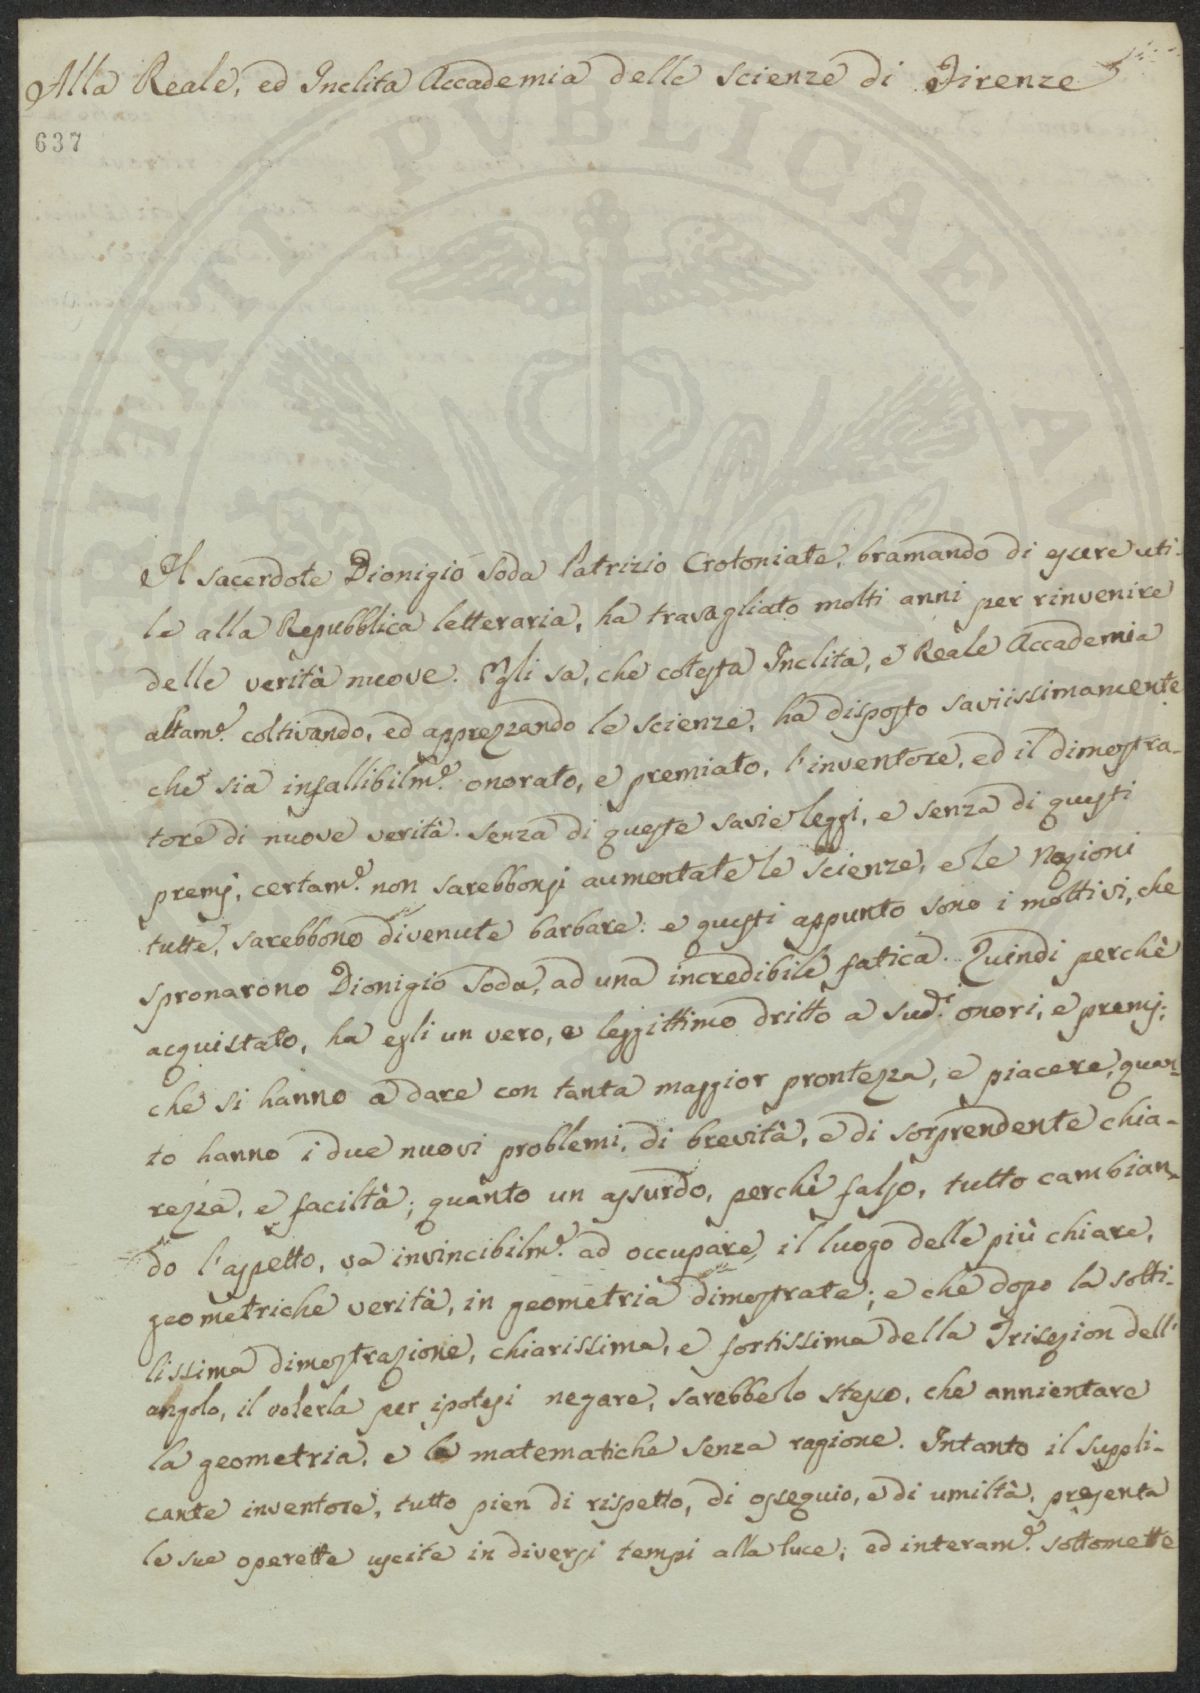 Alla Reale, ed Inclita Accademia delle scienze di Firenze
637
Il sacerdote Dionigio Soda Patrizio Crotoniate, bramando di essere uti-
le alla Repubblica letteraria, ha travagliato molti anni per rinvenire
delle verità nuove. Egli sa, che cotesta Inclita, e Reale Accademia
altam.e coltivando, ed apprezzando le scienze, ha disposto saviissimamente
che sia infallibilm.e onorato, e premiato, l'inventore, ed il dimostra-
tore di nuove verità. Senza di queste savie leggi, e senza di questi
premj, certam.e non sarebbonsi aumentate le scienze, e le Nazioni
tutte, sarebbono divenute barbare: e questi appunto sono i mottivi, che
spronarono Dionigio Soda, ad una incredibile fatica. Quindi perchè
acquistato, ha egli un vero, e leggittimo dritto a sud.i onori, e premj;
che si hanno a dare con tanta maggior prontezza, e piacere, quan-
to hanno i due nuovi problemi, di brevità, e di sorprendente chia-
rezza, e faciltà; quanto un assurdo, perchè falso, tutto cambian-
do l'aspetto, va invincibilm.e ad occupare, il luogo delle più chiare,
geometriche verità, in geometria dimostrate; e che dopo la sotti-
lissima dimostrazione, chiarissima, e fortissima della Trisezion dell'
angolo, il volerla per ipotesi negare, sarebbe lo stesso, che annientare
la geometria, e le matematiche senza ragione. Intanto il suppli-
cante inventore, tutto pien di rispetto, di ossequio, e di umiltà, presenta
le sue operette uscite in diversi tempi alla luce; ed interam.e sottomette
PUBLICAE